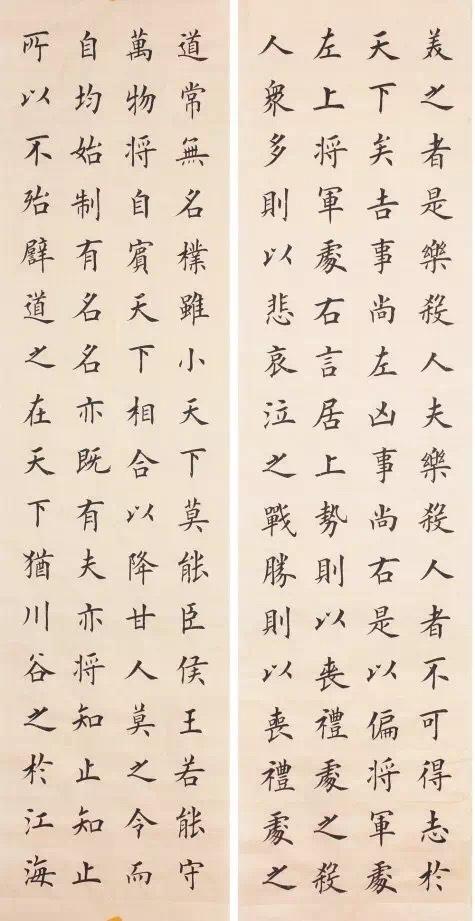 美之者是樂殺人夫樂殺人者不可得志於
天下矣吉事尚左凶事尚右是以偏將軍處
左上將軍處右言居上勢則以喪禮處之殺
人衆多則以悲哀泣之戰勝則以喪禮處之
道常無名樸雖小天下莫能臣侯王若能守
萬物将自賓天下相合以降甘人莫之令而
自均始制有名名亦既有夫亦将知止知止
所以不殆譬道之在天下猶川谷之於江海